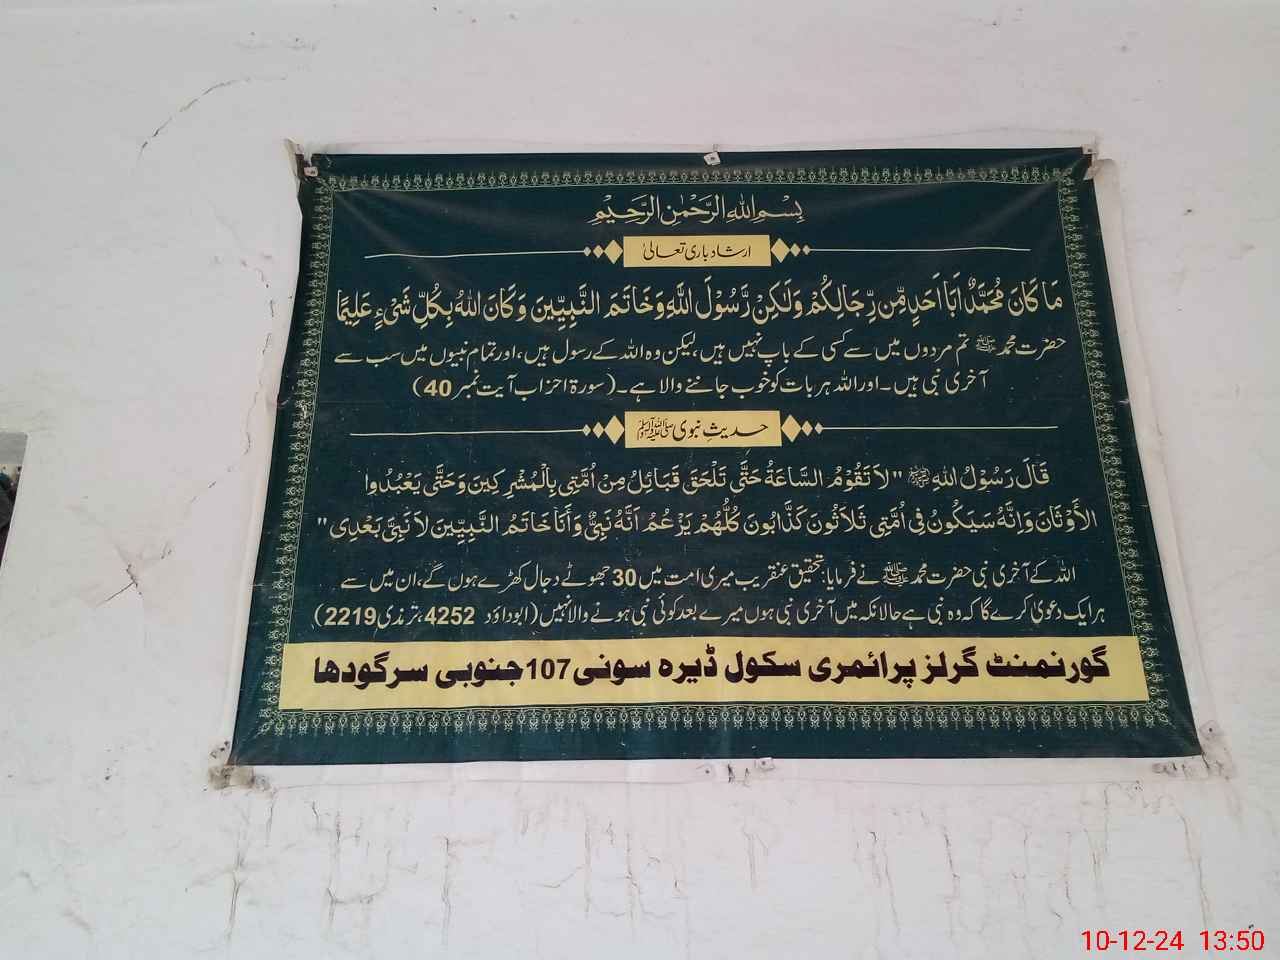 بِسْمِ اللهِ الرَّحْمٰنِ الرَّحِيْمِ
ارشاد باری تعالیٰ
مَا كَانَ مُحَمَّدٌ اَبَا اَحَدٍ مِّن رِّجَالِكُمْ وَلٰكِنْ رَّسُوْلَ اللّٰهِ وَخَاتَمَ النَّبِيّٖنَ وَكَانَ اللهُ بِكُلِّ شَیْءٍ عَلِيْمًا
حضرت محمد ﷺ تم مردوں میں سے کسی کے باپ نہیں ہیں، لیکن وہ اللہ کے رسول ہیں، اور تمام نبیوں میں سب سے
آخری نبی ہیں۔ اور اللہ ہر بات کو خوب جاننے والا ہے۔ (سورۃ احزاب آیت نمبر 40)
حدیثِ نبوی ﷺ
قَالَ رَسُوْلُ اللهِ ﷺ "لَا تَقُوْمُ السَّاعَةُ حَتَّى تَلْحَقَ قَبَائِلُ مِنْ اُمَّتِی بِالْمُشْرِكِينَ وَحَتَّى يَعْبُدُوا
الأَوْثَانَ وَاِنَّهُ سَيَكُونُ فِی اُمَّتِی ثَلَاثُونَ كَذَّابُونَ كُلُّهُمْ يَزْعُمُ اَنَّهُ نَبِیٌّ وَأَنَا خَاتَمُ النَّبِيِّينَ لَا نَبِیَّ بَعْدِی"
اللہ کے آخری نبی حضرت محمد ﷺ نے فرمایا: تحقیق عنقریب میری امت میں 30 جھوٹے دجال کھڑے ہوں گے، ان میں سے
ہر ایک دعویٰ کرے گا کہ وہ نبی ہے حالانکہ میں آخری نبی ہوں میرے بعد کوئی نبی ہونے والا نہیں (ابوداؤد 4252، ترمذی 2219)
گورنمنٹ گرلز پرائمری سکول ڈیرہ سونی 107 جنوبی سرگودھا
10-12-24 13:50